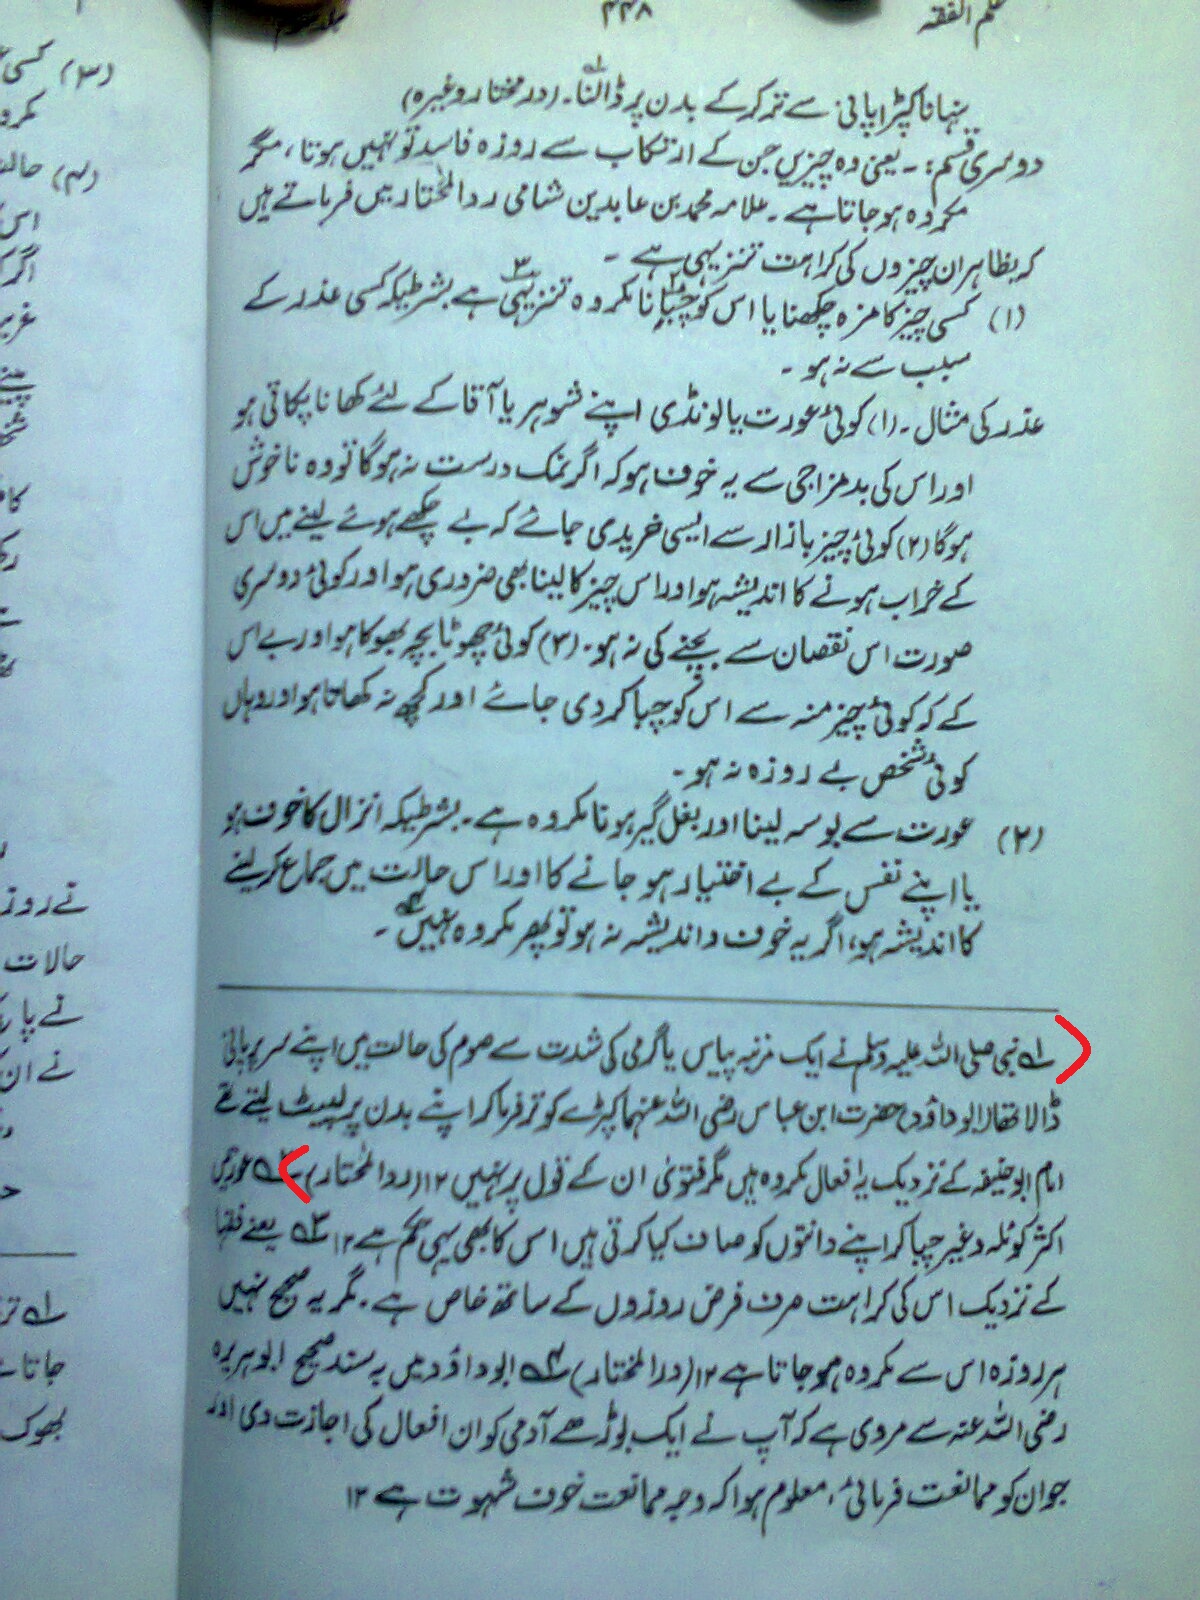 علم الفقہ ۴۴۸ جلد سوم
نہانا کپڑا پانی سے تر کر کے بدن پر ڈالنا۔ (در مختار وغیرہ)
دوسری قسم:۔ یعنی وہ چیزیں جن کے ارتکاب سے روزہ فاسد تو نہیں ہوتا، مگر
مکروہ ہو جاتا ہے۔ علامہ محمد بن عابدین شامی رد المحتار میں فرماتے ہیں
کہ بظاہر ان چیزوں کی کراہت تنزیہی ہے ۔
(۱) کسی چیز کا مزہ چکھنا یا اس کو چبانا ۲؎ مکروہ تنزیہی ۳؎ ہے بشرطیکہ کسی عذر کے
سبب سے نہ ہو ۔
عذر کی مثال ۔ (۱) کوئی عورت یا لونڈی اپنے شوہر یا آقا کے لئے کھانا پکاتی ہو
اور اس کی بدمزاجی سے یہ خوف ہو کہ اگر نمک درست نہ ہوگا تو وہ ناخوش
ہوگا (۲) کوئی چیز بازار سے ایسی خریدی جائے کہ بے چکھے ہوئے لینے میں اس
کے خراب ہونے کا اندیشہ ہو اور اس چیز کا لینا بھی ضروری ہو اور کوئی دوسری
صورت اس نقصان سے بچنے کی نہ ہو۔ (۳) کوئی چھوٹا بچہ بھوکا ہو اور بے اس
کے کہ کوئی چیز منہ سے اس کو چبا کر دی جائے اور کچھ نہ کھاتا ہو اور وہاں
کوئی شخص بے روزہ نہ ہو ۔
(۲) عورت سے بوسہ لینا اور بغل گیر ہونا مکروہ ہے۔ بشرطیکہ انزال کا خوف ہو
یا اپنے نفس کے بے اختیار ہو جانے کا اور اس حالت میں جماع کر لینے
کا اندیشہ ہو، اگر یہ خوف و اندیشہ نہ ہو تو پھر مکروہ نہیں ۴؎ ۔
۱؎ نبی صلی اللہ علیہ وسلم نے ایک مرتبہ پیاس یا گرمی کی شدت سے صوم کی حالت میں اپنے سر پر پانی
ڈالا تھا (ابو داؤد) حضرت ابن عباس رضی اللہ عنہما کپڑے کو تر فرما کر اپنے بدن پر لپیٹ لیتے تھے
امام ابو حنیفہ کے نزدیک یہ افعال مکروہ ہیں مگر فتویٰ ان کے قول پر نہیں ۱۲ (رد المحتار) ۲؎ عورتیں
اکثر کوئلہ وغیر چبا کر اپنے دانتوں کو صاف کیا کرتی ہیں اس کا بھی یہی حکم ہے ۱۲ ۳؎ بعضے فقہا
کے نزدیک اس کی کراہت صرف فرض روزوں کے ساتھ خاص ہے ۔ مگر یہ صحیح نہیں
ہر روزہ اس سے مکروہ ہو جاتا ہے ۱۲ (در المختار) ۴؎ ابو داؤد میں بہ سند صحیح ابو ہریرہ
رضی اللہ عنہ سے مروی ہے کہ آپ نے ایک بوڑھے آدمی کو ان افعال کی اجازت دی اور
جوان کو ممانعت فرمائی، معلوم ہوا کہ وجہ ممانعت خوف شہوت ہے ۱۲
(۳) کسی
(۴) حالت
اس
اگر
غریب
نے روز
حالات
نے پا
نے ان
۱؎
جاتا
بھوک